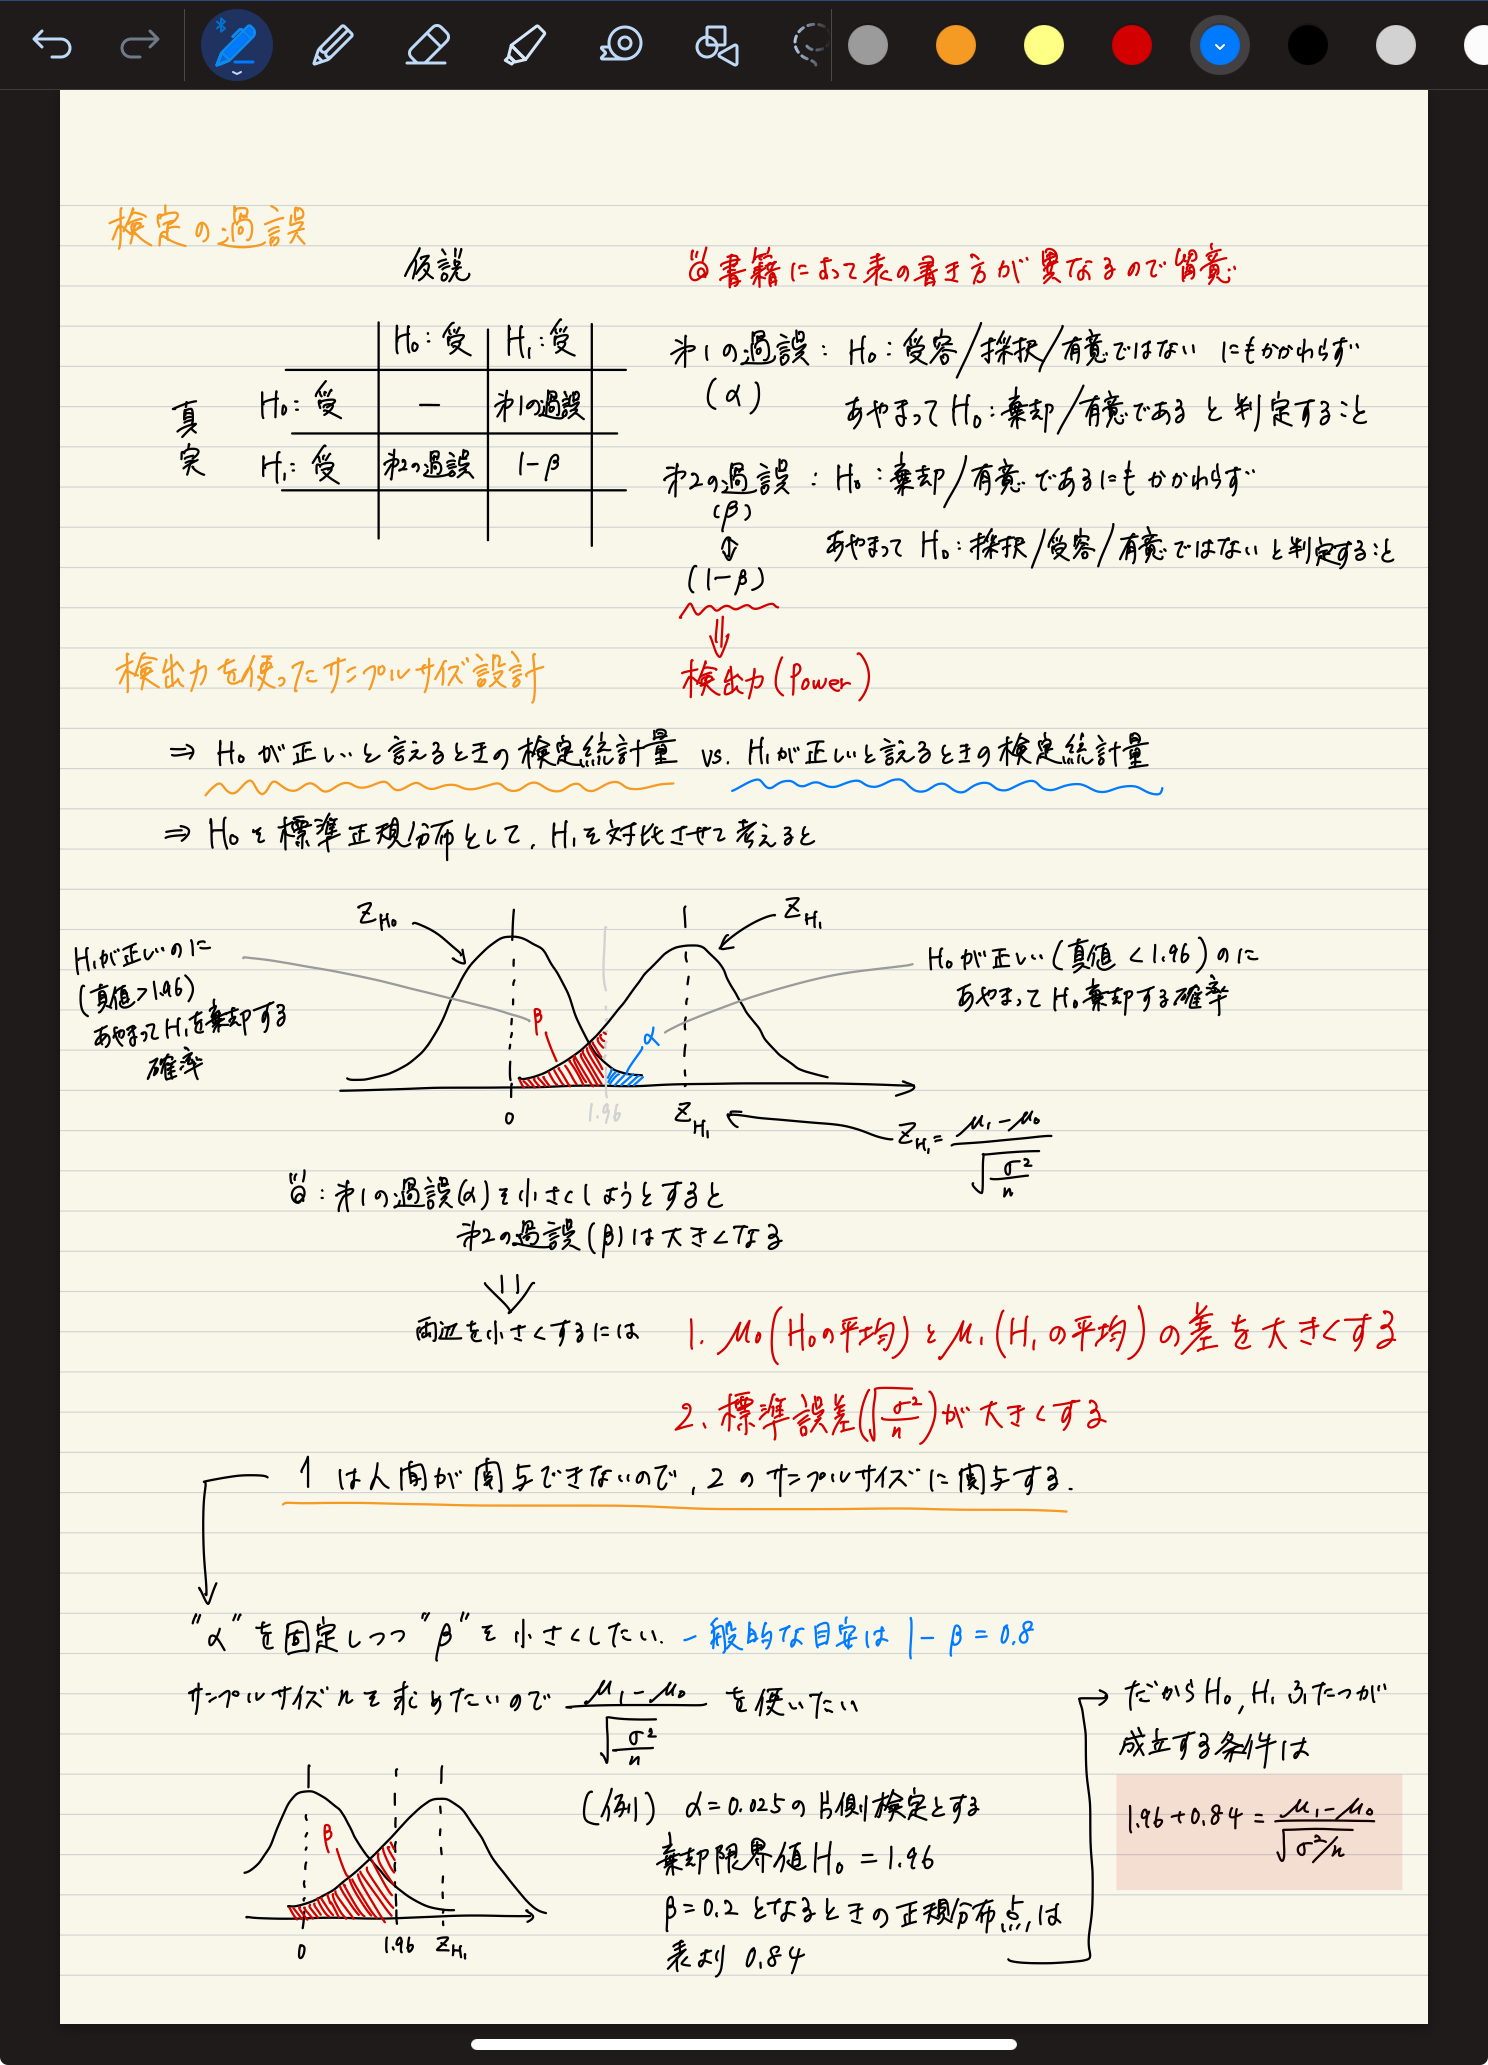 検定の過誤
仮説
書籍によって表の書き方が異なるので留意
H₀:受 H₁:受
真実
H₀:受 — 第1の過誤
H₁:受 第2の過誤 1-β
第1の過誤: H₀:受容/採択/有意ではない にもかかわらず
(α) あやまって H₀:棄却/有意である と判定すること
第2の過誤: H₀:棄却/有意であるにもかかわらず
(β)
あやまって H₀:採択/受容/有意ではないと判定すること
(1-β)
検出力(Power)
検出力を使ったサンプルサイズ設計
⇒ H₀が正しいと言えるときの検定統計量 vs. H₁が正しいと言えるときの検定統計量
⇒ H₀を標準正規分布として、H₁を対比させて考えると
Z_H₀ Z_H₁
H₁が正しいのに
(真値>1.96)
あやまってH₁を棄却する
確率
H₀が正しい(真値<1.96)のに
あやまってH₀棄却する確率
β α
0 1.96 Z_H₁
Z_H₁ = μ₁-μ₀ / √(σ²/n)
:第1の過誤(α)を小さくしようとすると
第2の過誤(β)は大きくなる
両辺を小さくするには
1. μ₀(H₀の平均)とμ₁(H₁の平均)の差を大きくする
2. 標準誤差(√(σ²/n))が大きくする
1は人間が関与できないので、2のサンプルサイズに関与する.
"α"を固定しつつ"β"を小さくしたい. 一般的な目安は 1-β=0.8
サンプルサイズnを求めたいので μ₁-μ₀ / √(σ²/n) を使いたい
β
0 1.96 Z_H₁
(例) α=0.025の片側検定とする
棄却限界値H₀=1.96
β=0.2となるときの正規分布点は
表より 0.84
だからH₀,H₁ふたつが
成立する条件は
1.96+0.84 = μ₁-μ₀ / √(σ²/n)